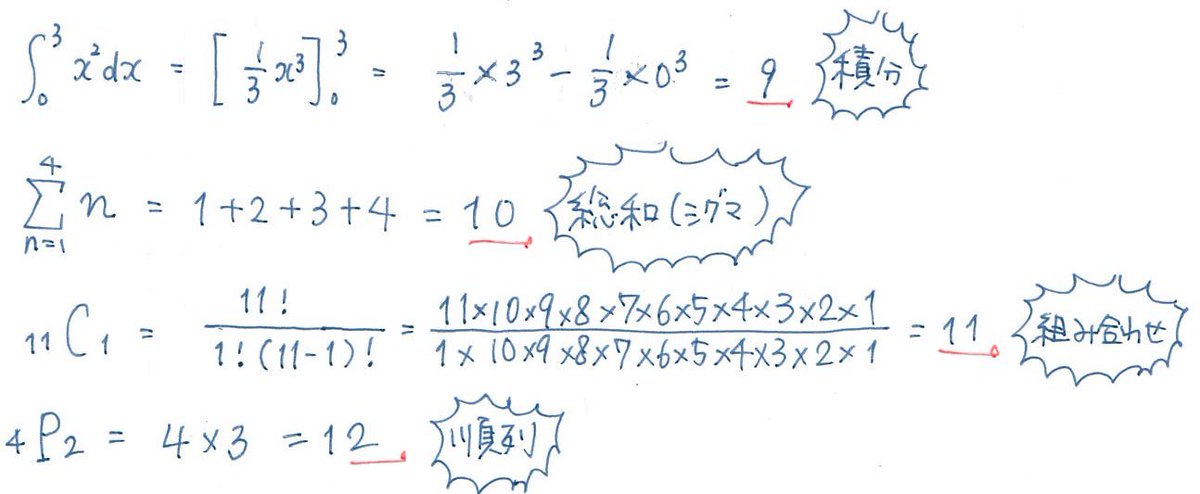 ∫₀³ x²dx = [1/3 x³]₀³ = 1/3 × 3³ − 1/3 × 0³ = 9 積分
∑ₙ₌₁⁴ n = 1+2+3+4 = 10 総和(シグマ)
₁₁C₁ = 11!/1!(11-1)! = 11×10×9×8×7×6×5×4×3×2×1/1×10×9×8×7×6×5×4×3×2×1 = 11 組み合わせ
₄P₂ = 4×3 = 12 順列